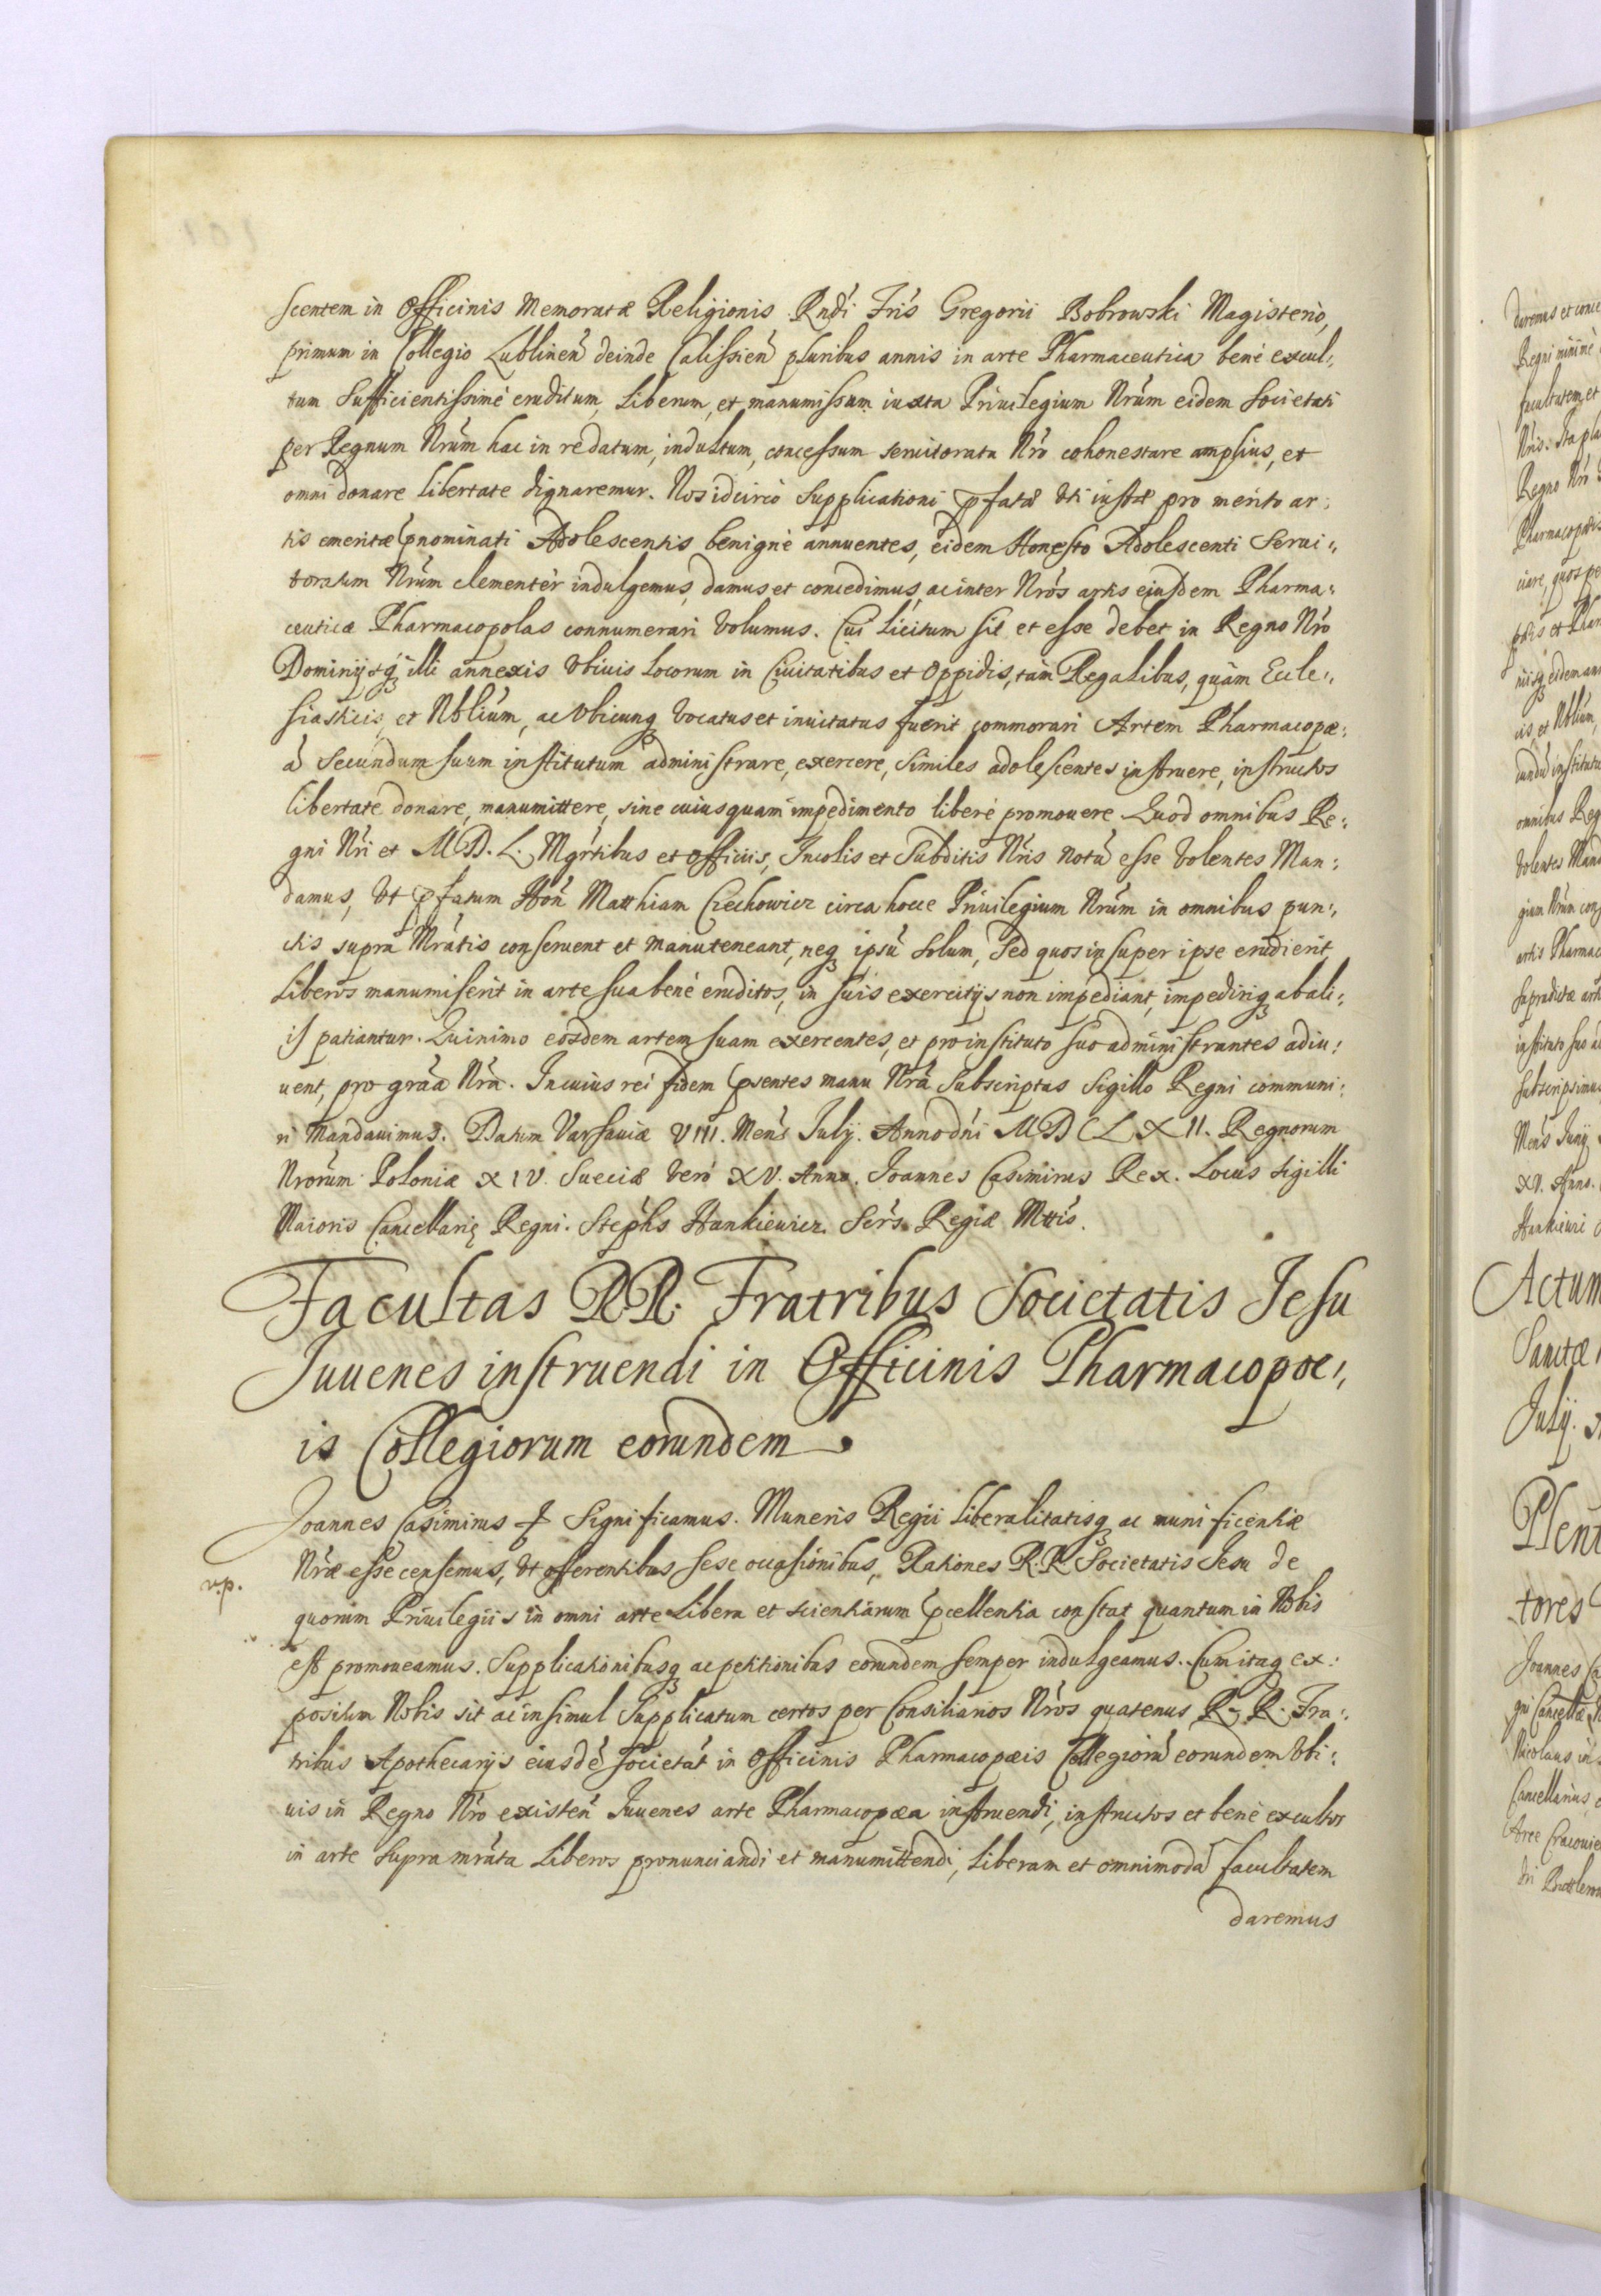 scentem in Officinis Memoratæ Religionis Rndi Fris Gregorii Bobrowski Magisterio,
primum in Collegio Lublinen deinde Calissien pluribus annis in arte Pharmaceutica bene excul:,
tum Sufficientissime eruditum, Liberum, et manumissum iuxta Priuilegium Nrum eidem Societati
per Regnum Nrum hac in re datum, indultum, concessum seruitoratu Nro cohonestare amplius, et
omni donare libertate dignaremur. Nos idcirco Supplicationi pfatæ Vti iustæ pro merito ar:
tis emeritæ pnominati Adolescentis benigne annuentes, eidem Honesto Adolescenti Serui:,
toratum Nrum clementer indulgemus, damus et concedimus, ac inter Nros artis eiusdem Pharma:
ceuticæ Pharmacopolas connumerari Volumus. Cui Licitum sit et esse debet in Regno Nro
Dominijsq illi annexis Vbiuis Locorum in Ciuitatibus et Oppidis, tam Regalibus, quam Eccle:,
siasticis, et Nblium, ac Vbicunq Vocatus et inuitatus fuerit commorari Artem Pharmacopæ:
a Secundum suum institutum administrare, exercere, Similes adolescentes instruere, instructos
libertate donare, manumittere, sine cuiusquam impedimento libere promouere Quod omnibus Re:
gni Nri et M.D.L. Mgrtibus et Officiis, Incolis et Subditis Nris notu esse Volentes Man:
damus, Vt pfatum Hon Matthiam Czechowicz circa hocce Priuilegium Nrum in omnibus pun:,
ctis supra Mratis conseruent et manuteneant, neq ipsu Solum, Sed quos insuper ipse erudierit,
Liberos manumiserit in arte sua bene eruditos, in suis exercitijs non impediant, impediriq ab ali:,
is patiantur. Quinimo eosdem artem suam exercentes, et pro instituto suo administrantes adiu:
uent, pro graa Nra. In cuius rei fidem psentes manu Nra Subscriptas Sigillo Regni communi:
ri Mandauimus. Datum Varsauiæ VIII. Mens July. Anno dni MDCLXII. Regnorum
Nrorum Poloniæ XIV. Sueciæ Vero XV. Anno. Joannes Casimirus Rex. Locus Sigilli
Maioris Cancellarię Regni. Stephs Hankiewicz Sers Regiæ Mttis.
Facultas R.R. Fratribus Societatis Jesu
Juuenes instruendi in Officinis Pharmacopoe:,
is Collegiorum eorundem
Joannes Casimirus Significamus. Muneris Regii Liberalitatisq ac munificentiæ
Nræ esse censemus, Vt offerentibus sese occasionibus, Rationes R.R Societatis Jesu de
v.p.
quorum Priuilegiis in omni arte Libera et scientiarum pcellentia constat quantum in Nobis
est promoueamus. Supplicationibusq ac petitionibus eorundem semper indulgeamus. Cum itaq ex:
positum Nobis sit ac insimul Supplicatum certos per Consiliarios Nros quatenus R. R. Fra:
tribus Apothecarijs eiusde Societat in Officinis Pharmacopæis Collegioru eorundem Vbi:
uis in Regno Nro existen Juuenes arte Pharmacopæa instruendi, instructos et bene excultos
in arte Supra mrata Liberos pronunciandi et manumittendi, Liberam et omnimoda facultatem
daremus